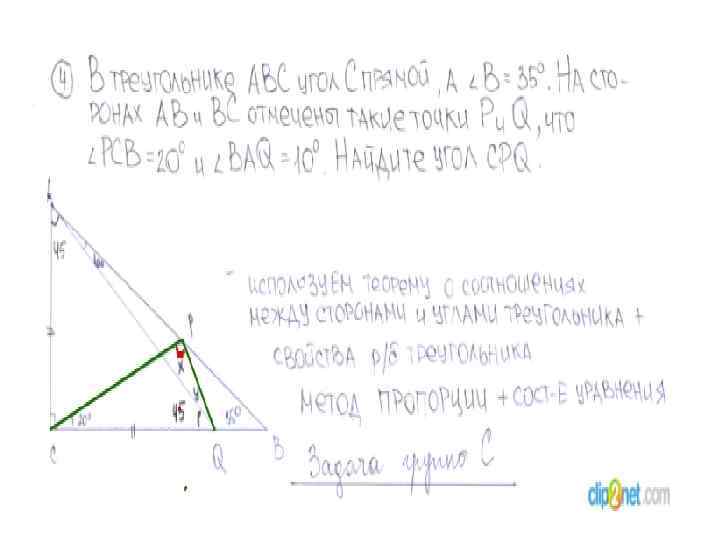 ④ В ТРЕУГОЛЬНИКЕ АВС УГОЛ С ПРЯМОЙ, А ∠В = 35°. НА СТО-
РОНАХ АВ И ВС ОТМЕЧЕНЫ ТАКИЕ ТОЧКИ Р И Q, ЧТО
∠РСВ = 20° И ∠BAQ = 10°. НАЙДИТЕ УГОЛ CPQ.
45
P
ИСПОЛЬЗУЕМ ТЕОРЕМУ О СООТНОШЕНИЯХ
МЕЖДУ СТОРОНАМИ И УГЛАМИ ТРЕУГОЛЬНИКА +
СВОЙСТВА Р/Б ТРЕУГОЛЬНИКА
x
y
МЕТОД ПРОПОРЦИИ + СОСТ-Е УРАВНЕНИЯ
20°
45
35°
C
Q
B
Задача группы С
clip2net.com